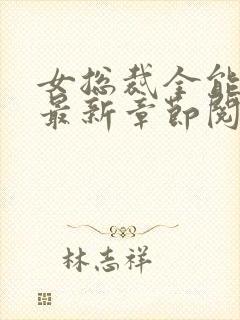 女总裁全能
最新章节阅
林志祥